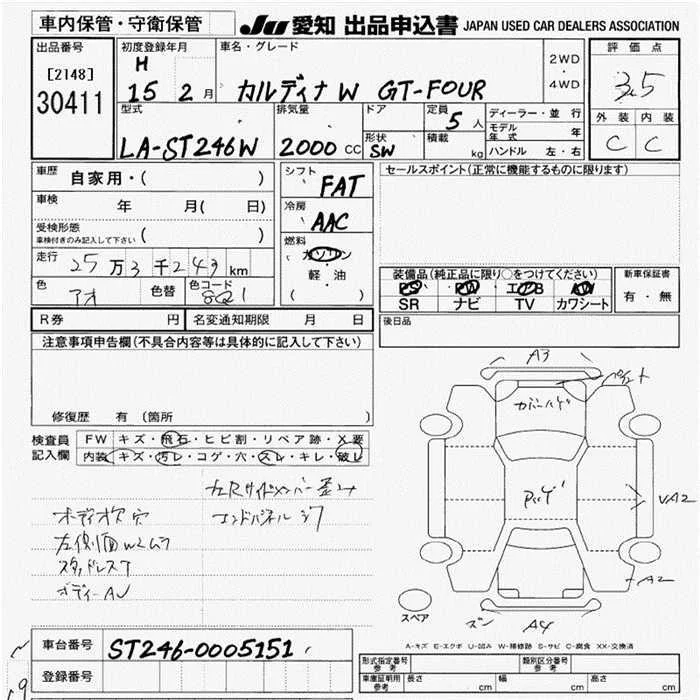 車内保管・守衛保管
JU 愛知 出品申込書 JAPAN USED CAR DEALERS ASSOCIATION
出品番号
[2148]
30411
初度登録年月
H
15 2 月
車名・グレード
カルディナ W GT-FOUR
2WD
・
4WD
評価点
3.5
外装 内装
C C
型式
LA-ST246W
排気量
2000 CC
ドア
形状
SW
定員
5 人
積載
kg
ディーラー・並行
モデル年式 年
ハンドル 左・右
車歴 自家用・( )
車検 年 月( 日)
受検形態
車検付きのみ記入して下さい ( )
走行 25 万 3 千 249 km
色 アオ 色替 色コード 8Q1
シフト
FAT
冷房
AAC
燃料
ガソリン
軽・油
( )
セールスポイント(正常に機能するものに限ります)
装備品(純正品に限り○をつけてください)
PS PW エアB AW
SR ナビ TV カワシート
新車保証書
有・無
R券 円 名変通知期限 月 日
後日品
注意事項申告欄(不具合内容等は具体的に記入して下さい)
修復歴 有 (箇所 )
検査員
記入欄
FW キズ・飛石・ヒビ割・リペア跡・X要
内装 キズ・汚レ・コゲ・穴・スレ・キレ・破レ
オーディオ欠 穴
左側面W2ムラ
スタッドレスT
A3
VA2
A2
A4
スペア
A-キズ E-エクボ U-凹み W-補修跡 S-サビ C-腐食 XX-交換済
車台番号 ST246-0005151
登録番号
形式指定番号
参考
類別区分番号
参考
車庫証明用
参考
長さ cm 幅 cm 高さ cm